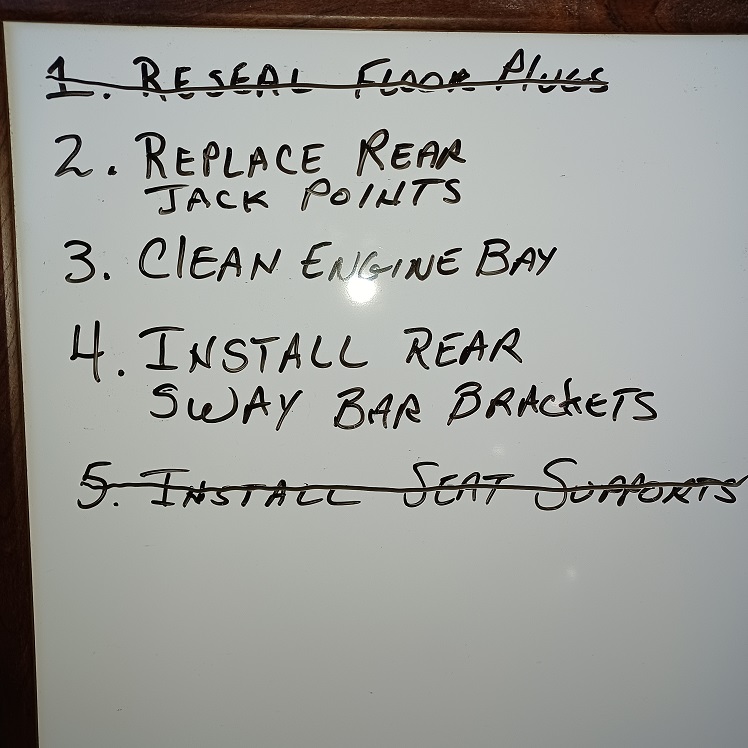 1. RESEAL FLOOR PLUGS
2. REPLACE REAR
JACK POINTS
3. CLEAN ENGINE BAY
4. INSTALL REAR
SWAY BAR BRACKETS
5. INSTALL SEAT SUPPORTS